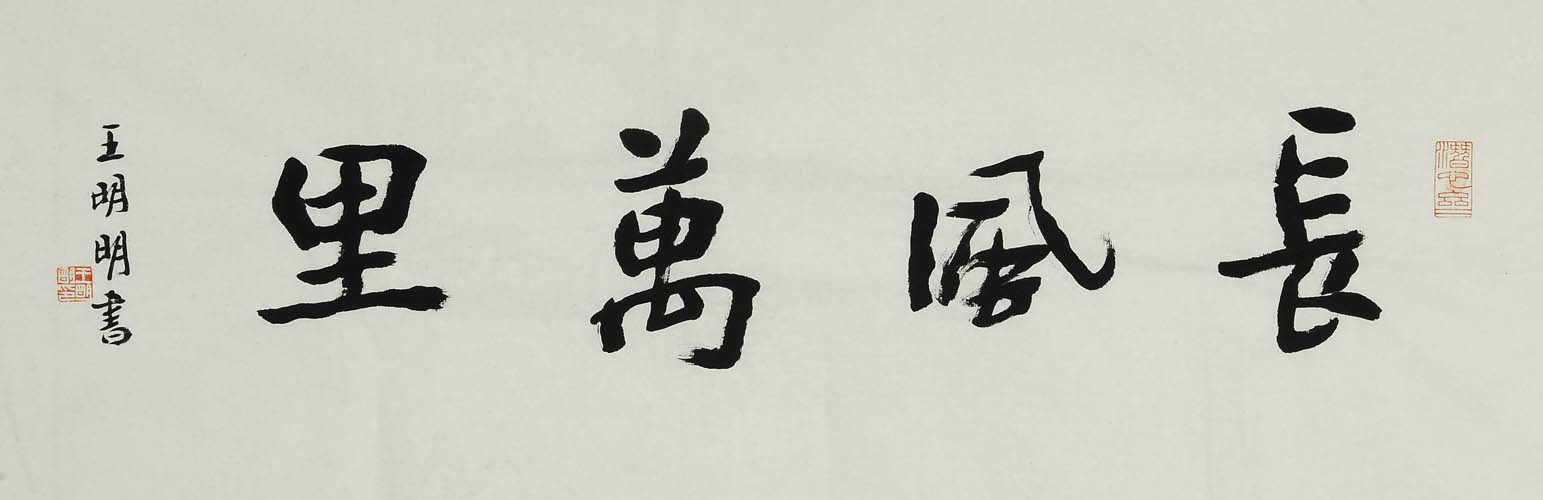 長風萬里
王明明書